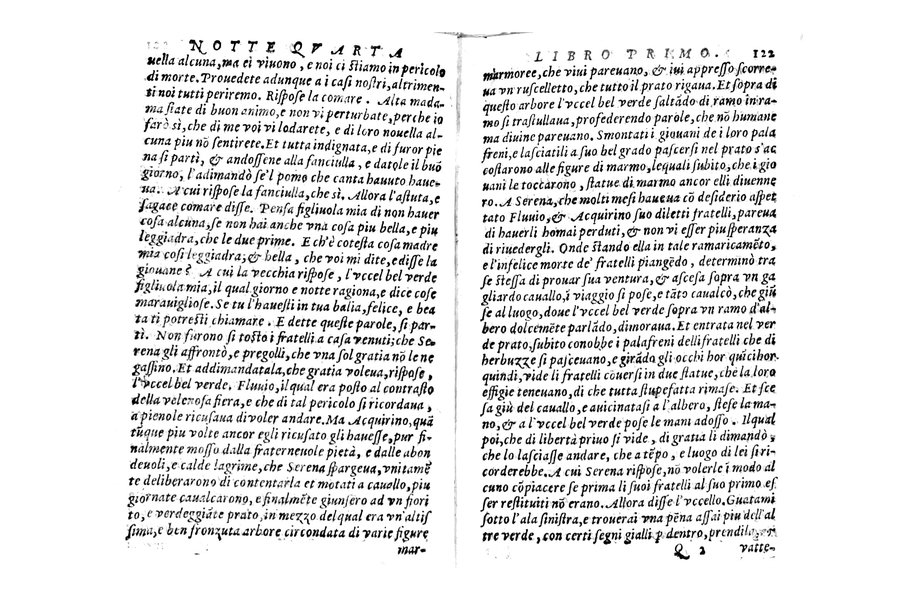 NOTTE QVARTA
uella alcuna, ma ei viuono, e noi ci stiamo in pericolo
di morte. Prouedete adunque a i casi nostri, altrimen-
ti noi tutti periremo. Rispose la comare. Alta mada-
ma state di buon animo, e non vi perturbate, perche io
farò sì, che di me voi vi lodarete, e di loro nouella al-
cuna piu nõ sentirete. Et tutta indignata, e di furor pie
na si partì, & andossene alla fanciulla, e datole il buõ
giorno, l'adimandò se'l pomo che canta hauuto haue-
ua. A cui rispose la fanciulla, che sì. Allora l'astuta, e
sagace comare disse. Pensa figliuola mia di non hauer
cosa alcuna, se non hai anche vna cosa piu bella, e piu
leggiadra, che le due prime. E ch'è cotesta cosa madre
mia cosi leggiadra, & bella, che voi mi dite, e disse la
giouane? A cui la vecchia rispose, l'vccel bel verde
figliuola mia, il qual giorno e notte ragiona, e dice cose
marauigliose. Se tu l'hauesti in tua balia, felice, e bea
ta ti potresti chiamare. E dette queste parole, si par-
tì. Non furono si tosto i fratelli a casa venuti; che Se-
rena gli affrontò, e pregolli, che vna sol gratia nõ le ne
gassino. Et addimandatala, che gratia voleua, rispose,
l'vccel bel verde. Fluuio, il qual era posto al contrasto
della velenosa fiera, e che di tal pericolo si ricordaua,
a pienole ricusaua di voler andare. Ma Acquirino, quã
tũque piu volte ancor egli ricusato gli hauesse, pur fi-
nalmente mosso dalla fraterneuole pietà, e dalle abon
deuoli, e calde lagrime, che Serena spargeua, vnitamẽ
te deliberarono di contentarla et mõtati a cauallo, piu
giornate caualcarono, e finalmẽte giunsero ad vn fiori
to, e verdeggiãte prato, in mezzo del qual era vn'altis
sima, e ben fronzuta arbore circondata di varie figure
mar-
LIBRO PRIMO. 122
marmoree, che viui pareuano, & iui appresso scorre-
ua vn ruscelletto, che tutto il prato rigaua. Et sopra di
questo arbore l'vccel bel verde saltãdo di ramo in ra-
mo si trastullaua, proferendo parole, che nõ humane
ma diuine pareuano. Smontati i giouani de i loro pala
freni, e lasciatili a suo bel grado pascersi nel prato s'ac
costarono alle figure di marmo, lequali subito, che i gio
uani le toccarono, statue di marmo ancor elli diuenne
ro. A Serena, che molti mesi haueua cõ desiderio aspet
tato Fluuio, & Acquirino suo diletti fratelli, pareua
di hauerli homai perduti, & non vi esser piu speranza
di riuedergli. Onde stando ella in tale ramaricamẽto,
e l'infelice morte de' fratelli piangẽdo, determinò tra
se stessa di prouar sua ventura, & ascesa sopra vn ga
gliardo cauallo, ĩ viaggio si pose, e tãto caualcò, che giũ
se al luogo, doue l'vccel bel verde sopra vn ramo d'al-
bero dolcemẽte parlãdo, dimoraua. Et entrata nel ver
de prato, subito conobbe i palafreni delli fratelli che di
herbuzze si pasceuano, e girãdo gli occhi hor quici hor
quindi, vide li fratelli cõuersi in due statue, che la loro
effigie teneuano, di che tutta stupefatta rimase. Et sce
sa giù del cauallo, e auicinatasi a l'albero, stese la ma-
no, & a l'vccel bel verde pose le mani adosso. Il qual
poi, che di libertà priuo si vide, di gratia li dimandò,
che lo lasciasse andare, che a tẽpo, e luogo di lei si ri-
corderebbe. A cui Serena rispose, nõ volerle i modo al
cuno cõpiacere se prima li suoi fratelli al suo primo es
ser restituiti nõ erano. Allora disse l'vccello. Guatami
sotto l'ala sinistra, e trouerai vna pẽna assai piu dell'al
tre verde, con certi segni gialli p dentro, prendila, e
Q 2 vatte-